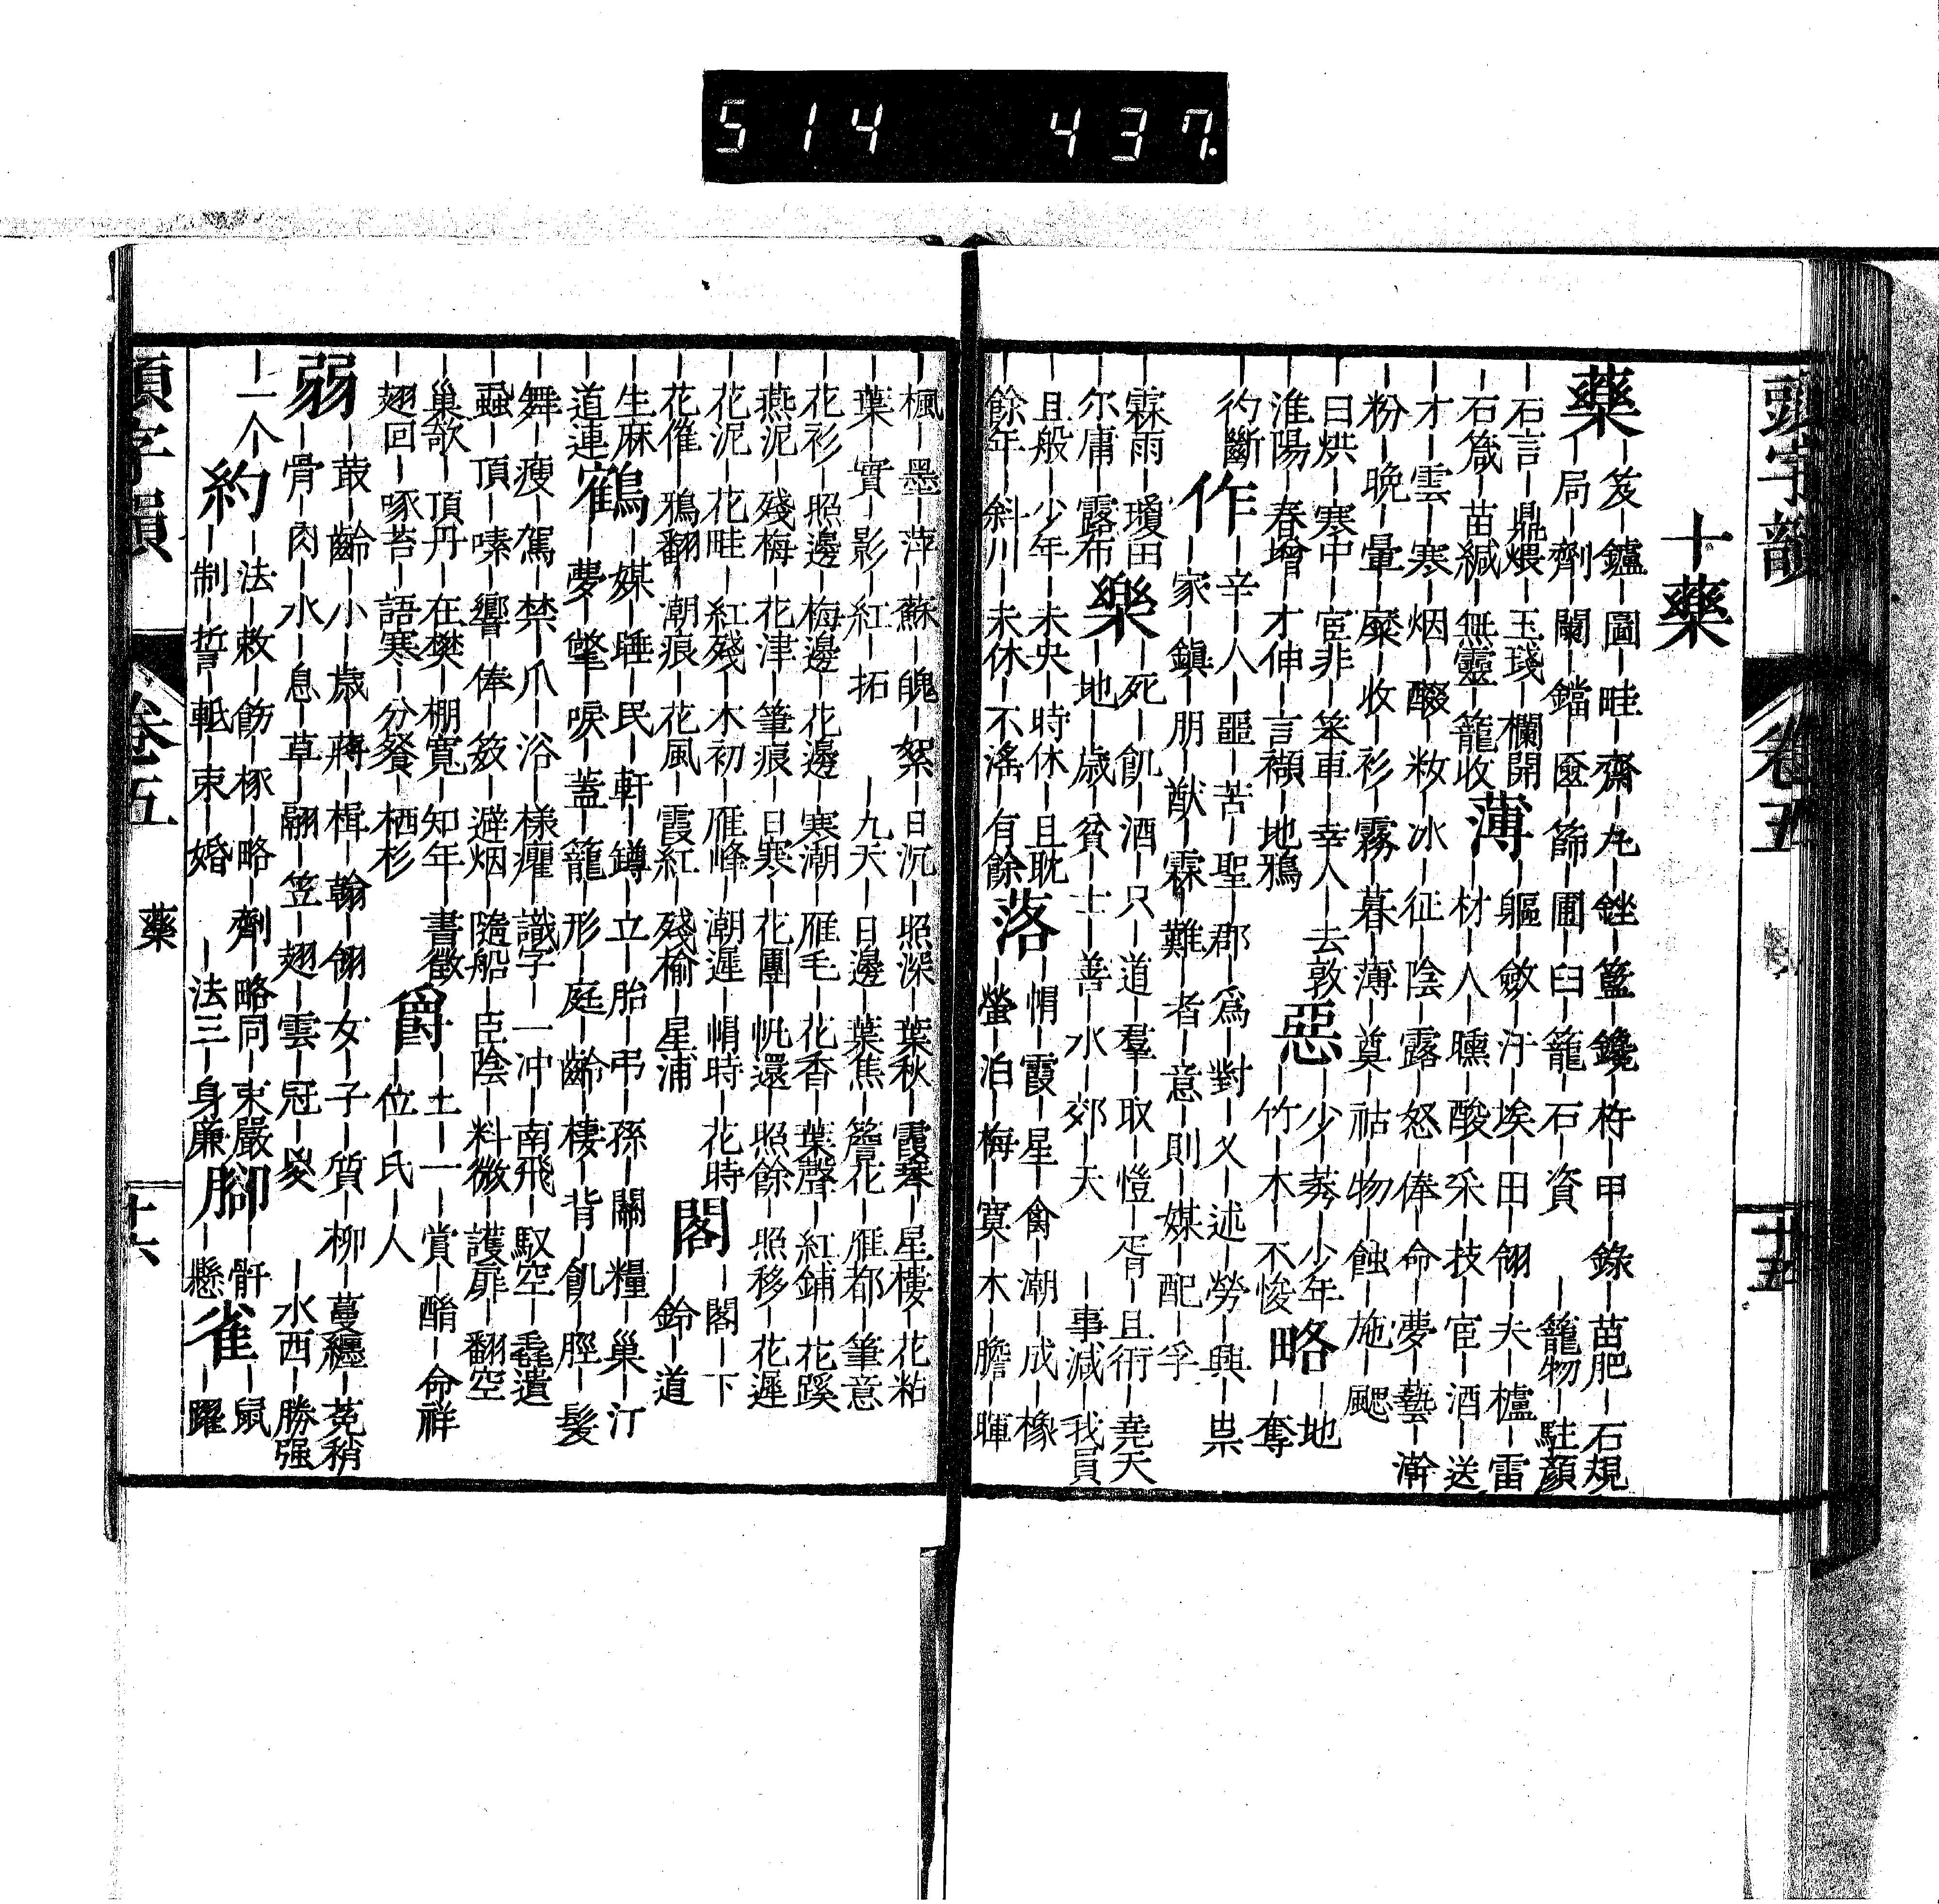 514 437.
頭字韻 卷五 十五
十藥
藥｜笈｜鑪｜圖｜畦｜齋｜丸｜銼｜籃｜鑱｜杵｜甲｜錄｜苗肥｜石規
｜局｜劑｜闌｜鐺｜匳｜篩｜圃｜臼｜籠｜石｜資｜籠物｜駐顏
｜石言｜鼎煨｜玉琖｜欄開
｜石箴｜苗緘｜無靈｜籠收
薄｜軀｜斂｜汙｜埃｜田｜翎｜夫｜櫨｜雷
｜材｜人｜曛｜酸｜采｜技｜宦｜酒｜送
｜才｜雲｜寒｜烟｜醱｜籹｜冰｜征｜陰｜露｜怒｜俸｜命｜夢｜藝｜澣
｜粉｜晩｜暈｜糜｜收｜衫｜霧｜暮｜薄｜奠｜祜｜物｜蝕｜施｜颸
｜日烘｜寒中｜宦非｜笨車｜幸人｜去敦
｜淮陽｜春增｜才伸｜言纇｜地鴉
惡｜少｜莠｜少年｜竹｜木｜不悛
略｜地｜奪
｜彴斷
作｜辛｜人｜噩｜苦｜聖｜郡｜爲｜對｜乂｜述｜勞｜興｜祟
｜家｜鎭｜朋｜猷｜霖｜難｜者｜意｜則｜媒｜配｜孚
｜霖雨｜瓊田
｜尔庸｜露布
樂｜死｜飢｜酒｜只｜道｜羣｜取｜愷｜胥｜且衎｜堯天
｜地｜歲｜貧｜士｜善｜水｜郊｜天｜事減｜我員
｜且般｜少年｜未央｜時休｜且耽
｜餘年｜斜川｜未休｜不滛｜有餘
落｜帽｜霞｜星｜禽｜潮｜成｜橡
｜螢｜泊｜梅｜寞｜木｜膽｜暉
｜楓｜墨｜萍｜蘇｜魄｜絮｜日沉｜照深｜葉秋｜霞寒｜星樓｜花粘
｜葉｜實｜影｜紅｜拓｜九天｜日邊｜葉焦｜簷花｜雁都｜筆意
｜花衫｜照邊｜梅邊｜花邊｜寒潮｜雁毛｜花香｜葉聲｜紅鋪｜花蹊
｜燕泥｜殘梅｜花津｜筆痕｜日寒｜花團｜帆還｜照餘｜照移｜花遲
｜花泥｜花畦｜紅殘｜木初｜雁峰｜潮遲｜帽時｜花時
｜花催｜鴉翻｜潮痕｜花風｜霞紅｜殘榆｜星浦
閣｜閣｜下｜鈴｜道
｜生麻
｜道連
鶴｜媒｜睡｜民｜軒｜鐏｜立｜胎｜弔｜孫｜關｜糧｜巢｜汀
｜夢｜氅｜唳｜蓋｜籠｜形｜庭｜齡｜樓｜背｜飢｜脛｜髮
｜舞｜瘦｜駕｜禁｜爪｜浴｜樣癯｜識字｜一冲｜南飛｜馭空｜毳遺
｜蝨｜頂｜嗉｜響｜俸｜䇿｜避烟｜隨船｜臣陰｜料微｜護扉｜翻空
｜巢欹｜頂丹｜在樊｜棚寬｜知年｜書徵
｜翅回｜啄苔｜語寒｜分餐｜栖杉
爵｜土｜一｜賞｜酳｜命祥
｜位｜氏｜人
弱｜蕞｜齡｜小｜歲｜蔣｜楫｜翰｜翎｜女｜子｜質｜柳｜蔓纒｜莬稍
｜骨｜肉｜水｜息｜草｜翮｜笠｜翅｜雲｜冠｜㚇｜水西｜勝强
｜一个
約｜法｜敕｜飭｜椓｜略｜劑｜略同｜束嚴
｜制｜誓｜軝｜束｜婚｜法三｜身廉
腳｜骭｜懸
雀｜鼠｜躍
卷五 藥 十六